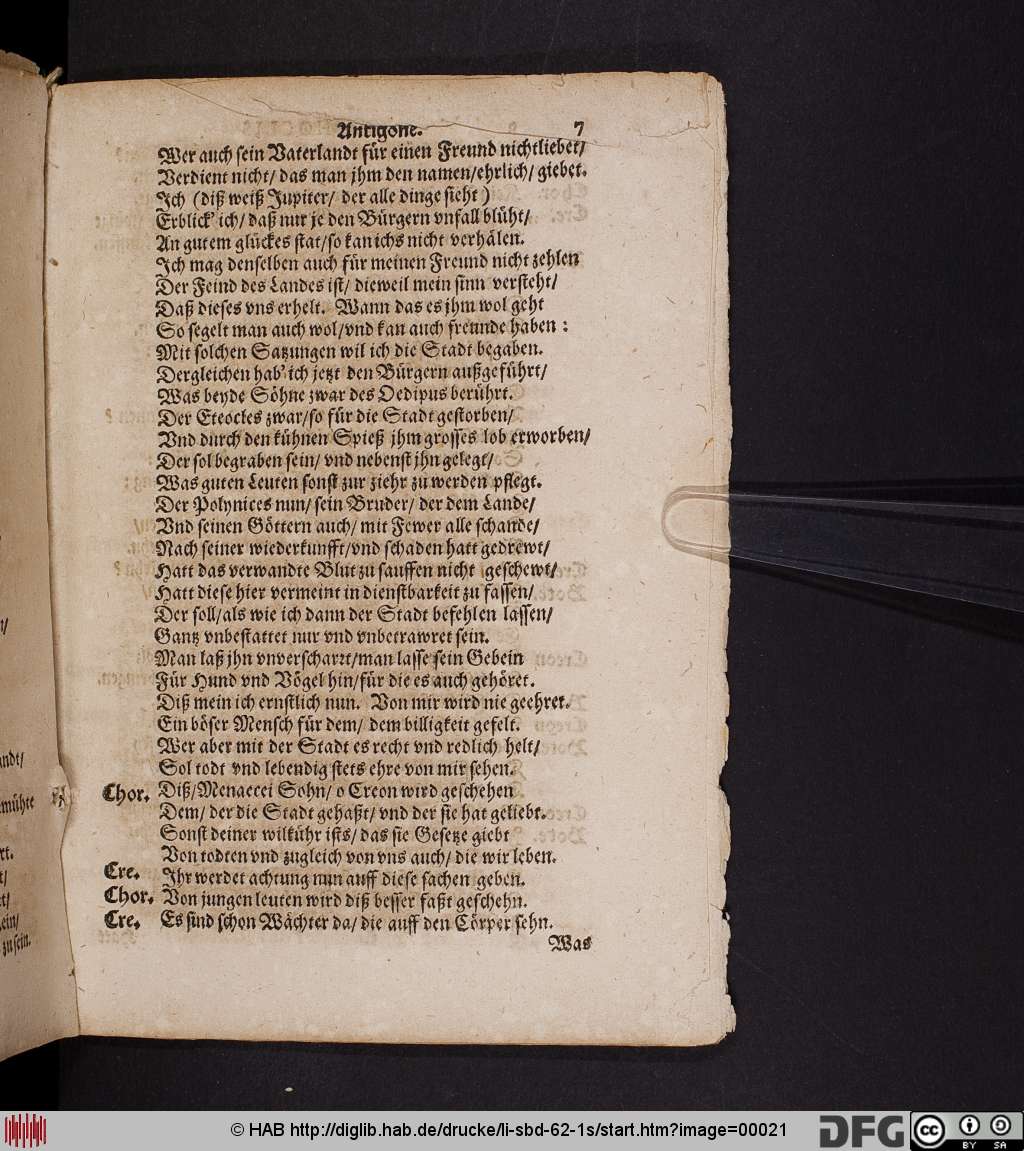 Antigone. 7
Wer auch sein Vaterlandt für einen Freund nicht liebet/
Verdient nicht/ das man jhm den namen/ehrlich/ giebet.
Ich (diß weiß Jupiter/ der alle dinge sieht)
Erblick' ich/ daß nur je den Bürgern vnfall blüht/
An gutem glückes stat/so kan ichs nicht verhälen.
Ich mag denselben auch für meinen Freund nicht zehlen
Der Feind des Landes ist/ dieweil mein sinn versteht/
Daß dieses vns erhelt. Wann das es jhm wol geht
So segelt man auch wol/vnd kan auch freunde haben:
Mit solchen Satzungen wil ich die Stadt begaben.
Dergleichen hab' ich jetzt den Bürgern außgeführt/
Was beyde Söhne zwar des Oedipus berührt.
Der Eteocles zwar/so für die Stadt gestorben/
Vnd durch den kühnen Spieß jhm grosses lob erworben/
Der sol begraben sein/ vnd nebenst jhn gelegt/
Was guten Leuten sonst zur ziehr zu werden pflegt.
Der Polynices nun/ sein Bruder/ der dem Lande/
Vnd seinen Göttern auch/ mit Fewer alle schande/
Nach seiner wiederkunfft/vnd schaden hatt gedrewt/
Hatt das verwandte Blut zu sauffen nicht geschewt/
Hatt diese hier vermeint in dienstbarkeit zu fassen/
Der soll/als wie ich dann der Stadt befehlen lassen/
Gantz vnbestattet nur vnd vnbetrawret sein.
Man laß jhn vnverscharrt/man lasse sein Gebein
Für Hund vnd Vögel hin/für die es auch gehöret.
Diß mein ich ernstlich nun. Von mir wird nie geehret.
Ein böser Mensch für dem/ dem billigkeit gefelt.
Wer aber mit der Stadt es recht vnd redlich helt/
Sol todt vnd lebendig stets ehre von mir sehen.
Chor. Diß/Menaecei Sohn/ o Creon wird geschehen
Dem/ der die Stadt gehaßt/ vnd der sie hat geliebt.
Sonst deiner wilkühr ists/ das sie Gesetze giebt
Von todten vnd zugleich von vns auch/ die wir leben.
Cre. Ihr werdet achtung nun auff diese sachen geben.
Chor. Von jungen leuten wird diß besser faßt geschehn.
Cre. Es sind schon Wächter da/ die auff den Cörper sehn.
Was
andt/
mühte
rt.
t/
et/
ein/
zu sein.
© HAB http://diglib.hab.de/drucke/li-sbd-62-1s/start.htm?image=00021
DFG
cc
BY SA